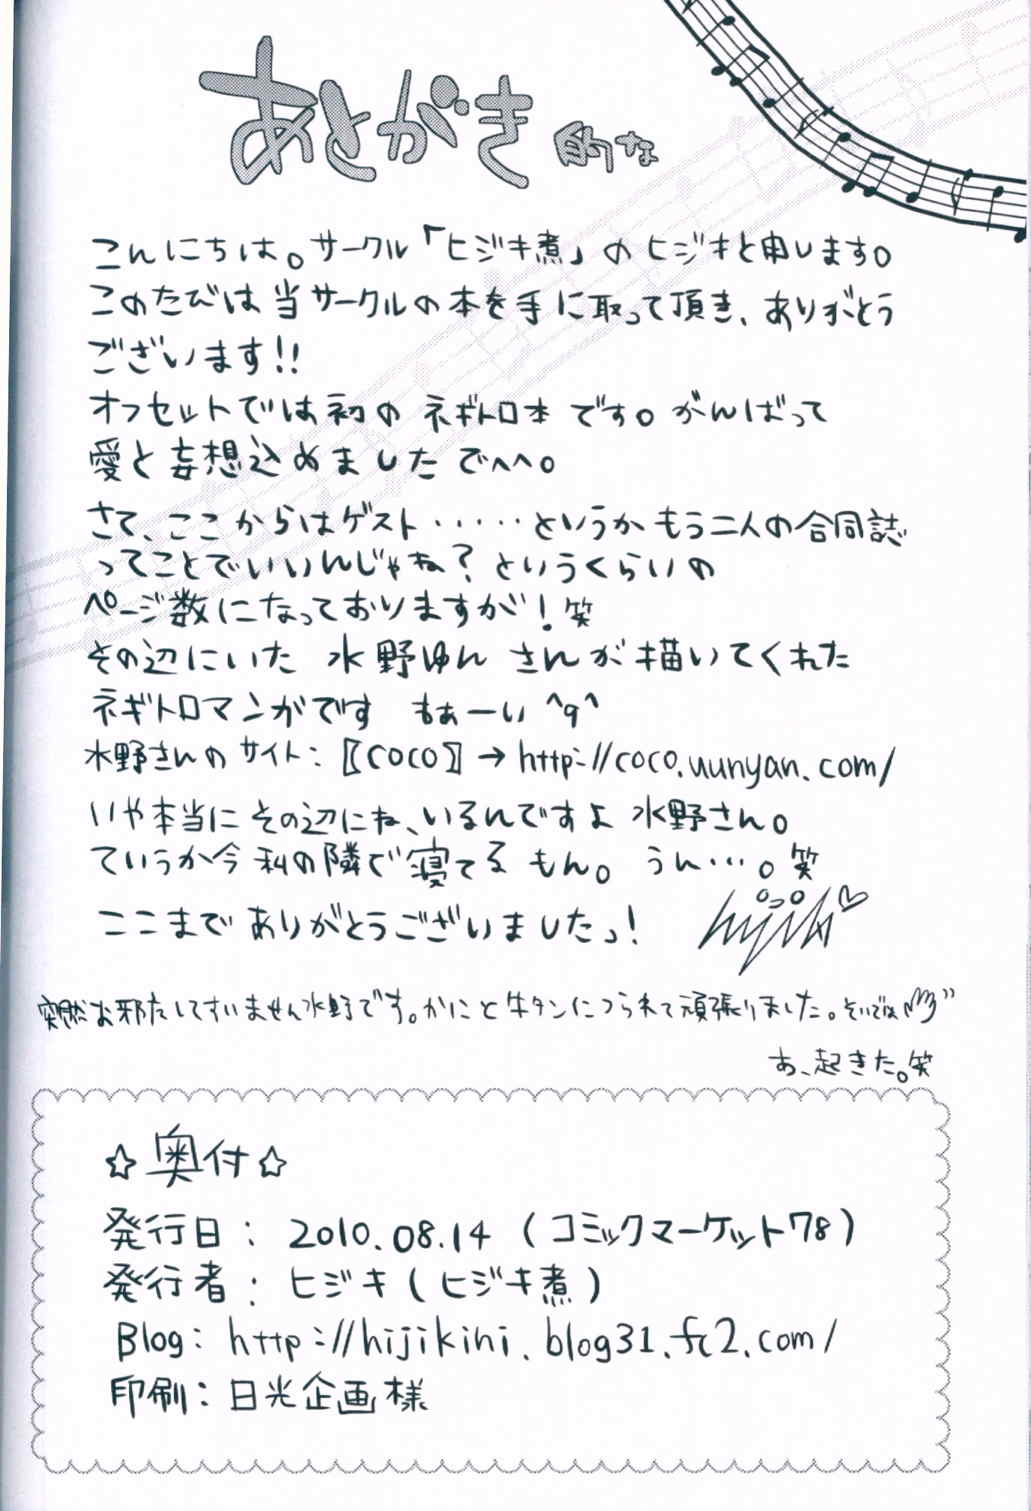 あとがき的な
こんにちは。サークル「ヒジキ煮」のヒジキと申します。
このたびは当サークルの本を手に取って頂き、ありがとう
ございます!!
オフセットでは初のネギトロ本です。がんばって
愛と妄想込めましたでへへ。
さて、ここからはゲスト・・・・・というかもう二人の合同誌
ってことでいいんじゃね?というくらいの
ページ数になっておりますが!笑
その辺にいた 水野ゆん さんが描いてくれた
ネギトロマンガです もぁーい ^q^
水野さんのサイト:〖COCO〗→http://coco.uunyan.com/
いや本当にその辺にね、いるんですよ 水野さん。
ていうか今私の隣で寝てるもん。うん…。笑
ここまでありがとうございましたっ!
hijiki♡
突然お邪魔してすいません水野です。かにと牛タンにつられて頑張りました。そいでは
あ、起きた。笑
☆奥付☆
発行日: 2010.08.14 (コミックマーケット78)
発行者: ヒジキ(ヒジキ煮)
Blog: http://hijikini.blog31.fc2.com/
印刷: 日光企画様